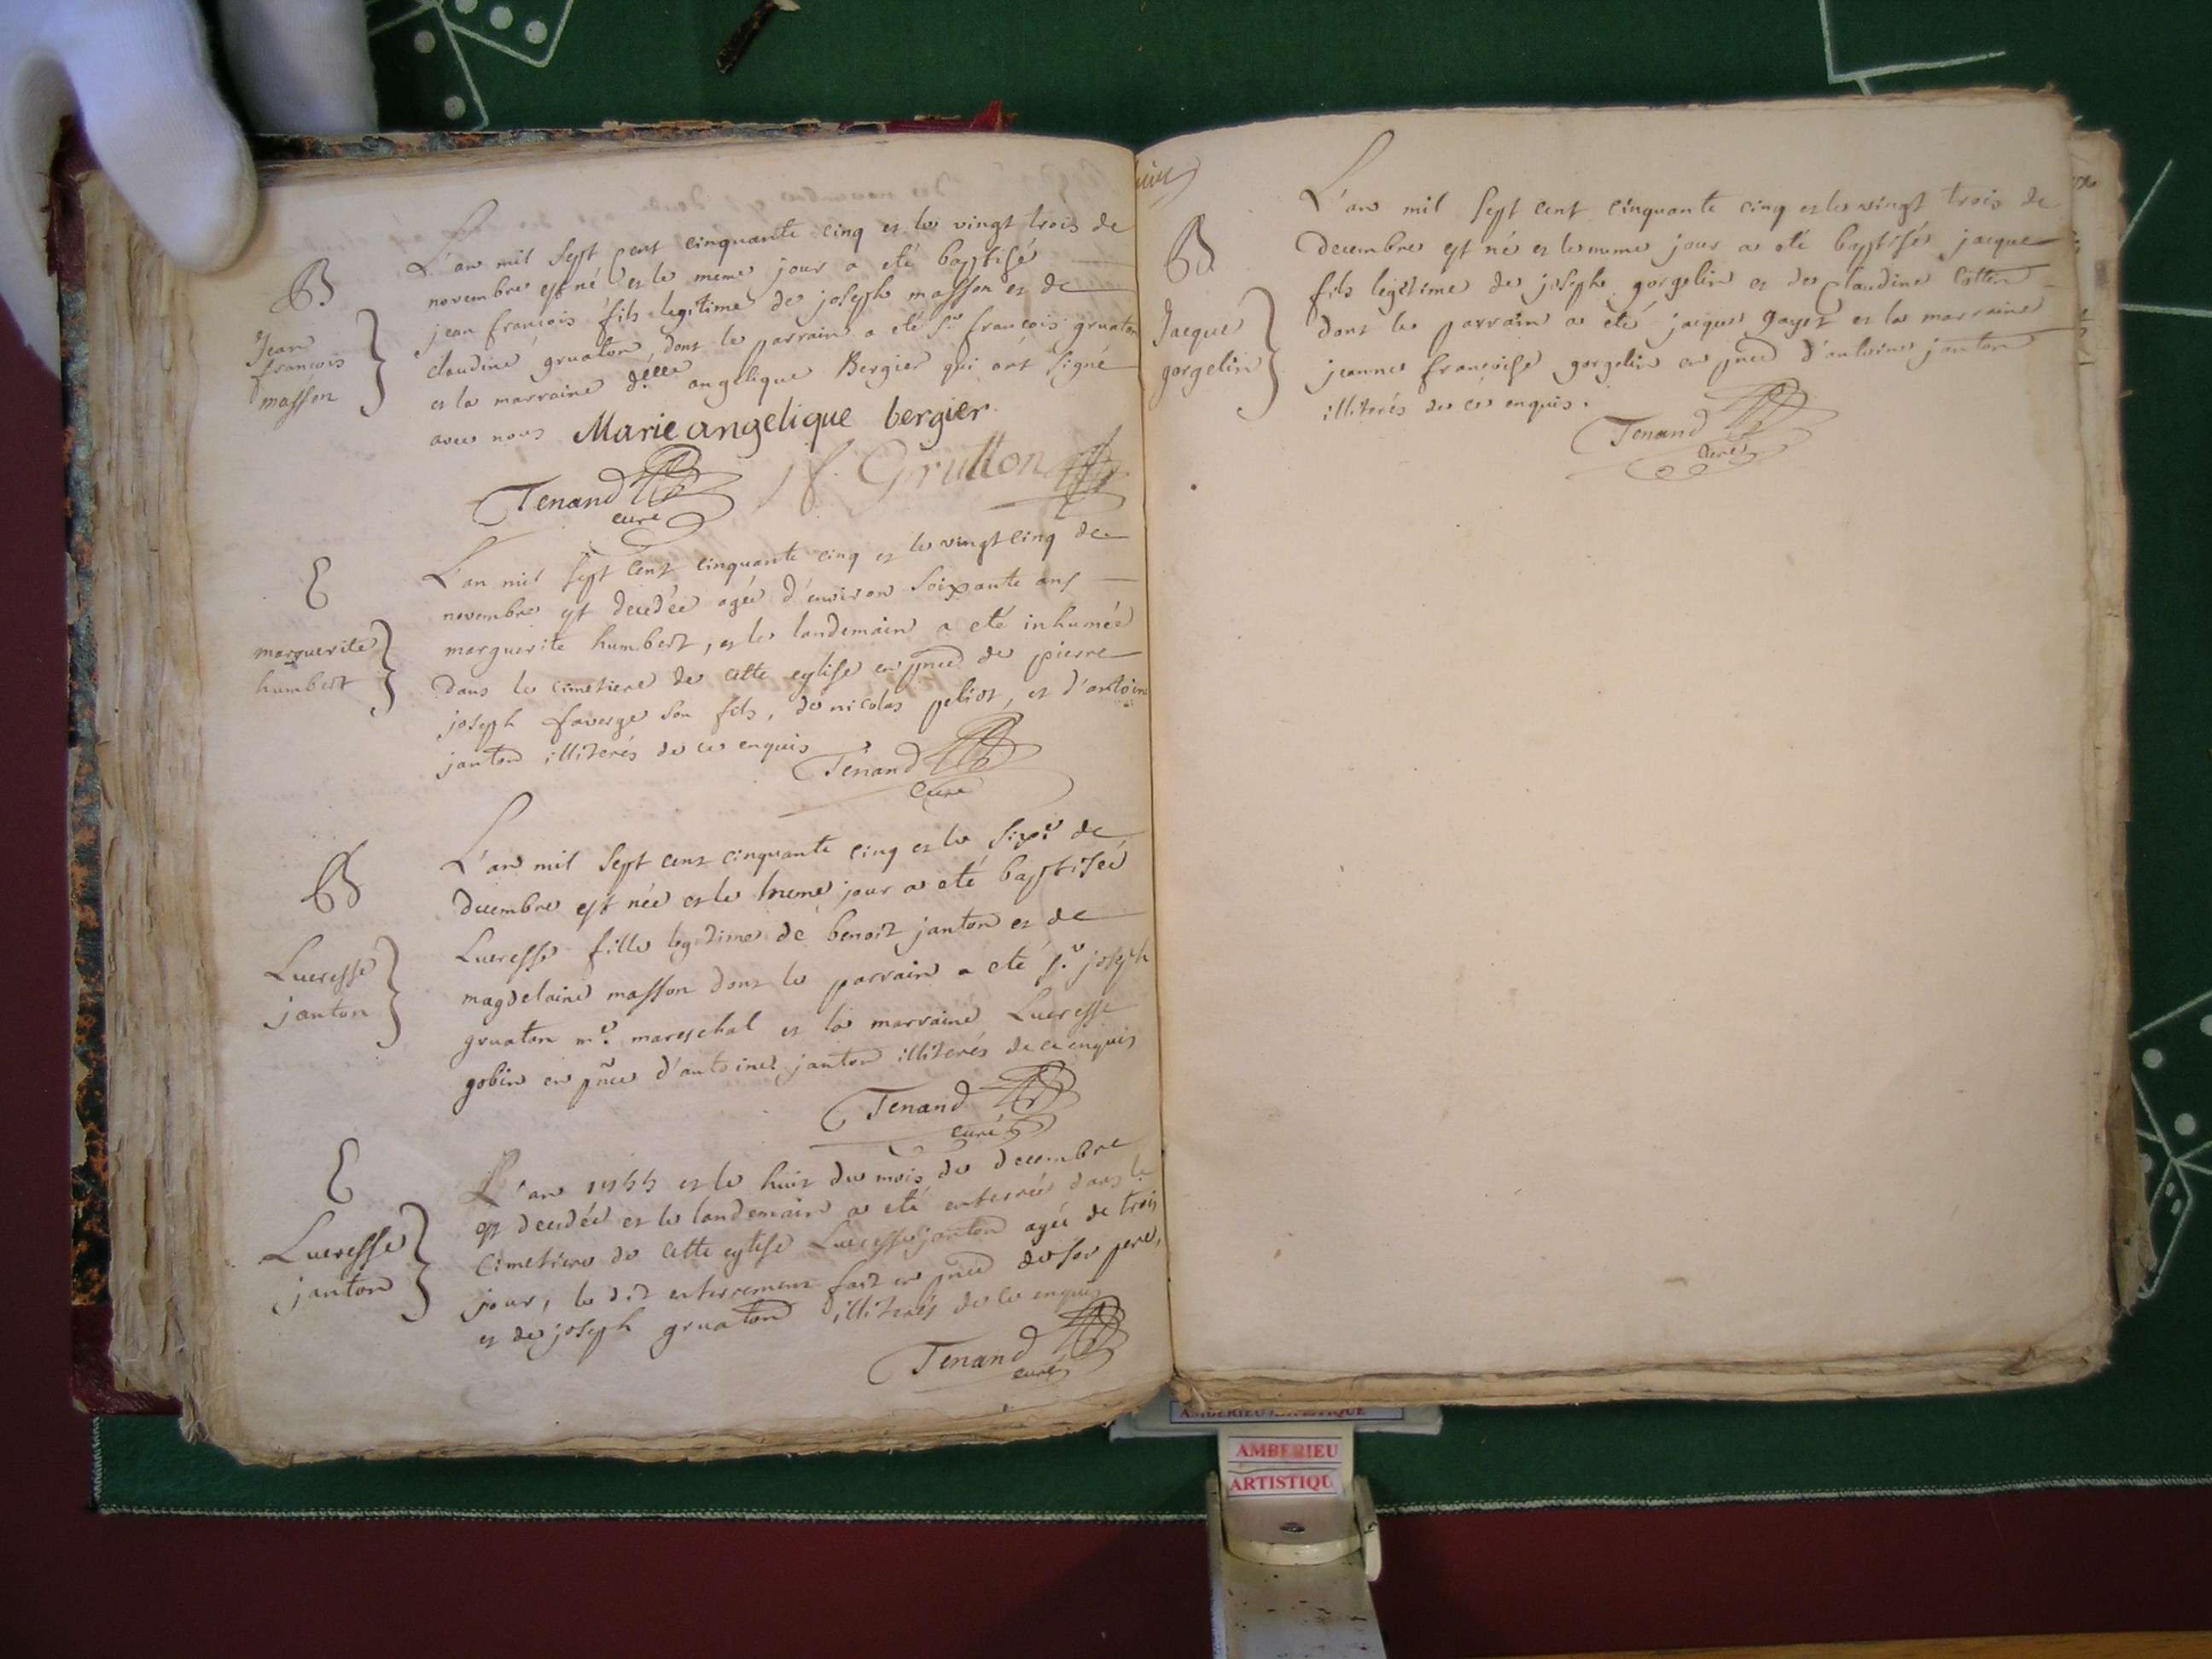 B
Jean
francois
masson
L'an mil sept cent cinquante cinq et le vingt trois de
novembre est né et le meme jour a eté baptisé
jean francois fils legitime de joseph masson et de
claudine gruaton, dont le parrain a eté sr. francois gruaton
et la marraine d.elle angelique Bergier qui ont signé
avec nous Marie angelique bergier.
Tenand curé
jf. Grutton
E
marguerite
humbert
L'an mil sept cent cinquante cinq et le vingt cinq de
novembre est decedée agée d'environ soixante ans
marguerite humbert, et le landemain a eté inhumée
dans le cimetiere de cette eglise en pnce de pierre
joseph faverge son fils, de nicolas peliot, et d'antoine
janton illiterés de ce enquis
Tenand
curé
B
Lucresse
janton
L'an mil sept cent cinquante cinq et le sixe. de
decembre est née et le meme jour a eté baptisée
Lucresse fille legitime de benoit janton et de
magdelaine masson dont le parrain a eté sr. joseph
gruaton me. mareschal et la marraine Lucresse
gobin en pnce d'antoine janton illiterés de ce enquis
Tenand
curé
E
Lucresse
janton
L'an 1755 et le huit du mois de decembre
est decedée et le landemain a eté enterrée dans le
cimetiere de cette eglise Lucresse janton agée de trois
jour, le dit enterrement fait en pnce de son pere,
et de joseph gruaton illiterés de ce enquis
Tenand
curé
B
Jacque
gorgelin
L'an mil sept cent cinquante cinq et le vingt trois de
decembre est né et le meme jour a eté baptisé jacque
fils legitime de joseph gorgelin et de Claudine Cottin
dont le parrain a eté jacques gayet et la marraine
jeanne francoise gorgelin en pnce d'antoine janton
illiterés de ce enquis.
Tenand
curé
AMBERIEU ARTISTIQUE
AMBERIEU
ARTISTIQU